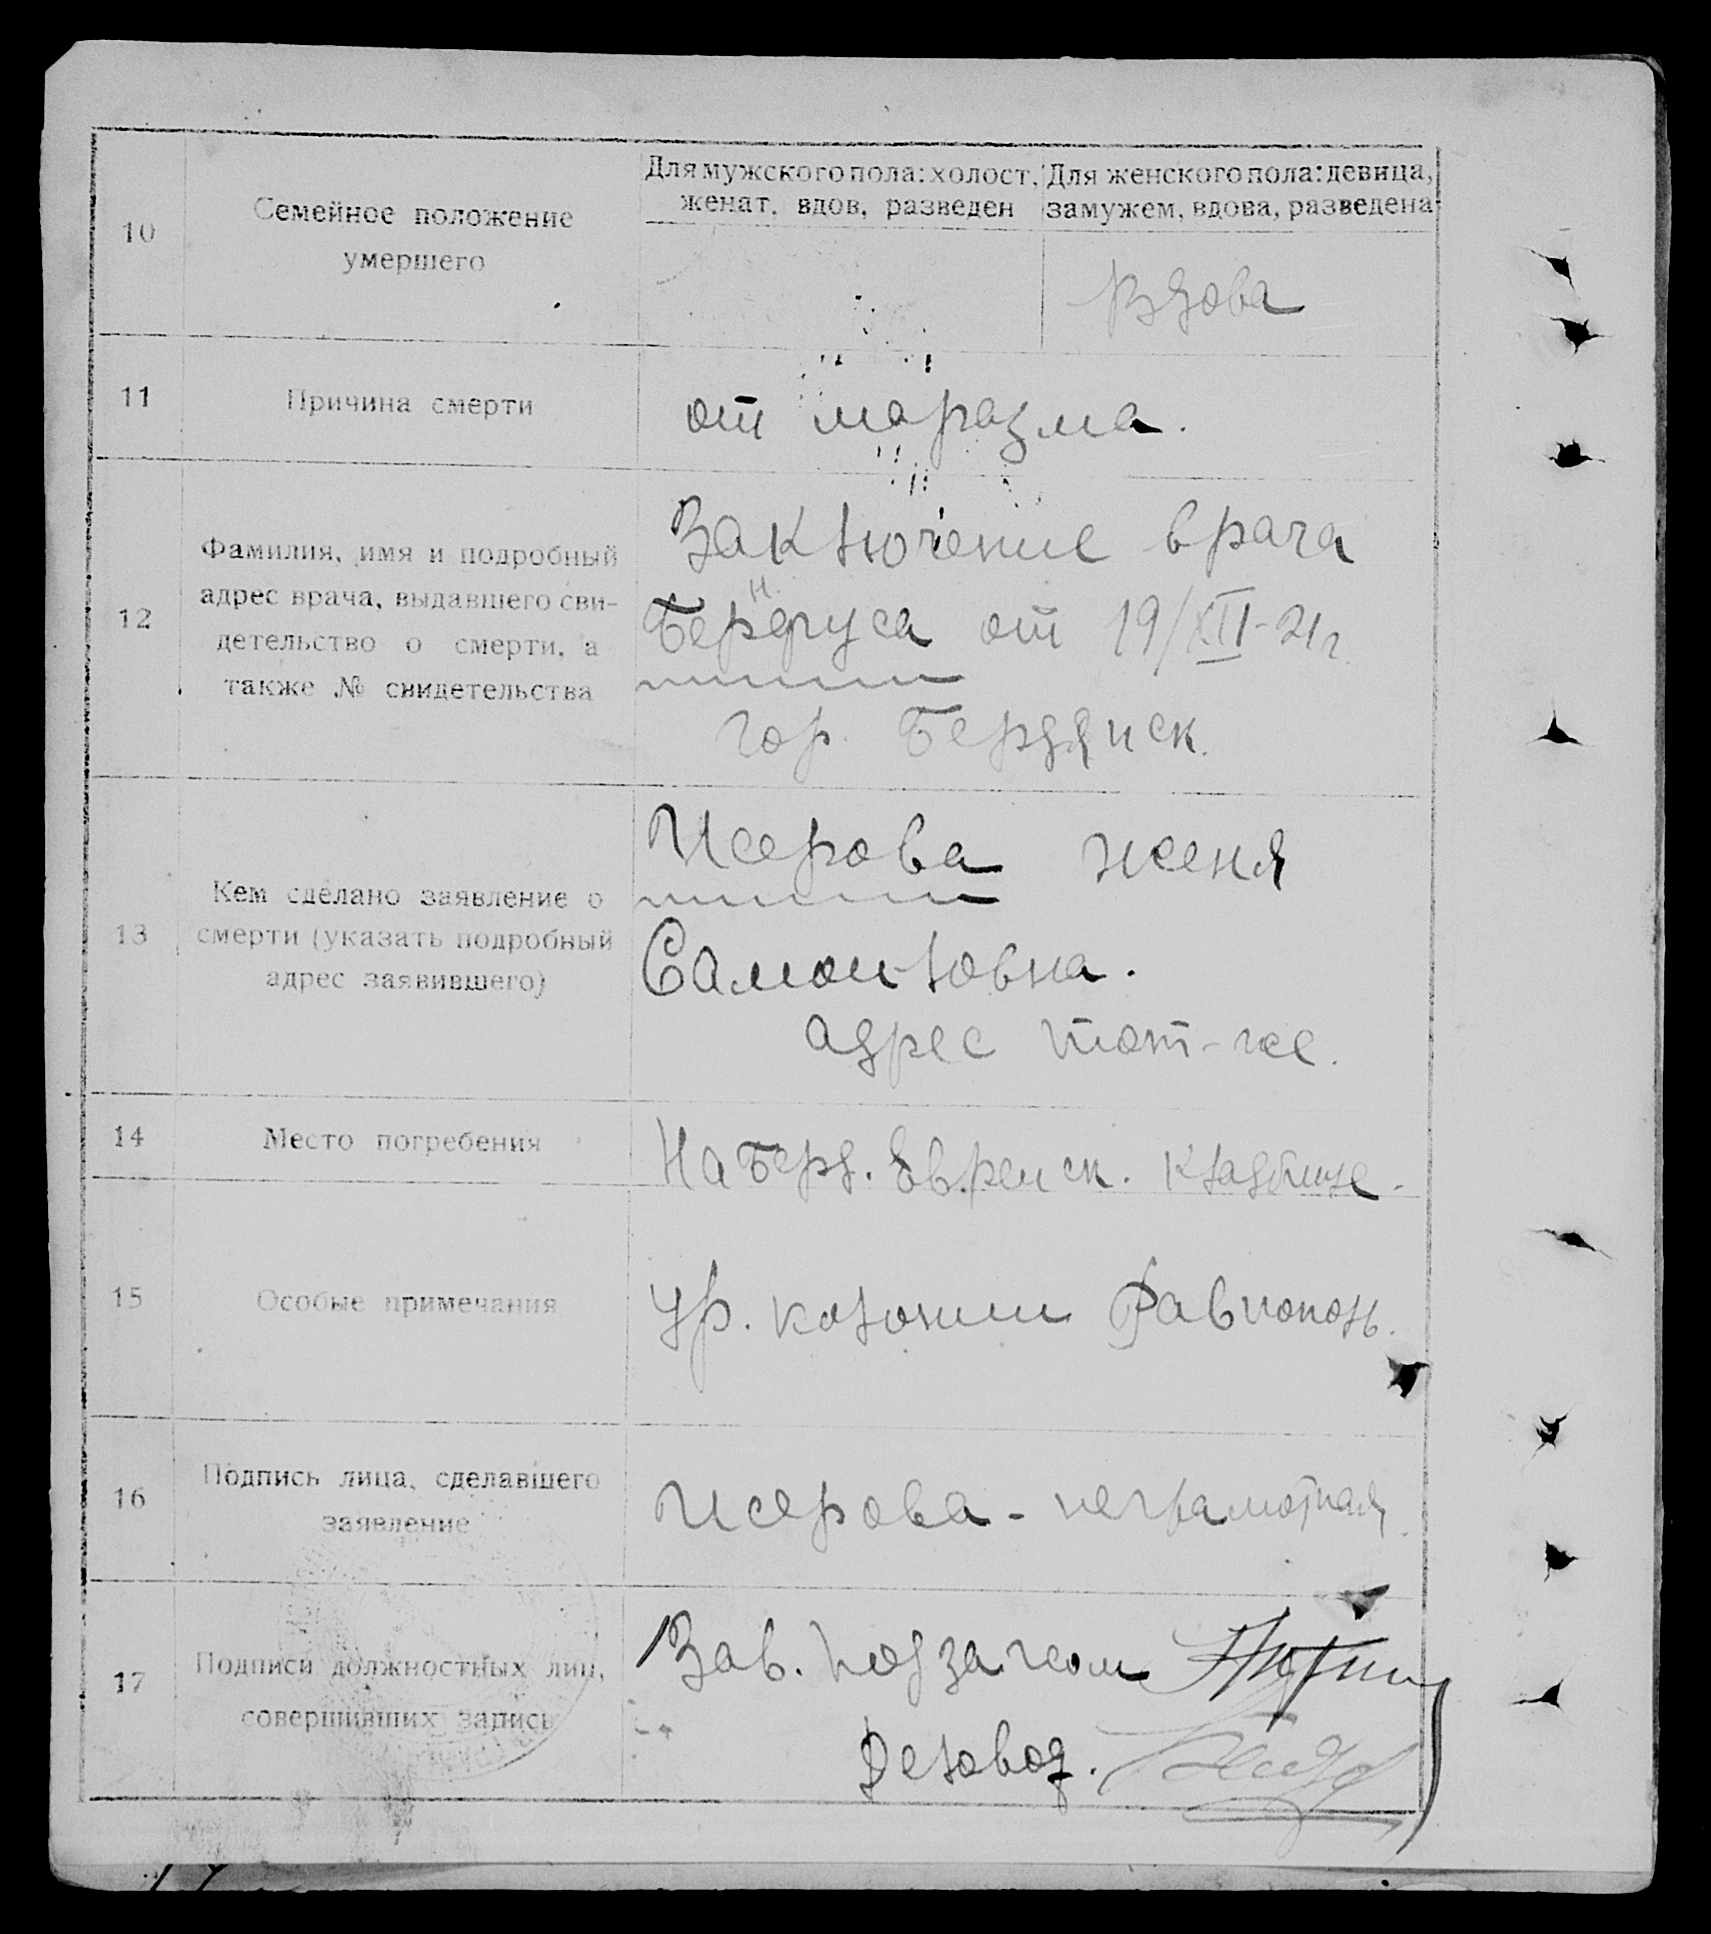 Для мужского пола: холост, женат, вдов, разведен
Для женского пола: девица, замужем, вдова, разведена
10 Семейное положение умершего
Вдова
11 Причина смерти
от маразма.
12 Фамилия, имя и подробный
адрес врача, выдавшего сви-
детельство о смерти, а
также № свидетельства
Заключение врача
от 19/XII-21г.
гор. Бердянск.
13 Кем сделано заявление о
смерти (указать подробный
адрес заявившего)
Исерова женя
Самойловна.
адрес тот-же.
14 Место погребения
На Берд. Евреиск. кладбище.
15 Особые примечания
Ур. колонии Равнополь.
16 Подпись лица, сделавшего
заявление
Исерова - неграмотная.
17 Подписи должностных лиц,
совершивших запись
Зав. подзагсом
Деловод.